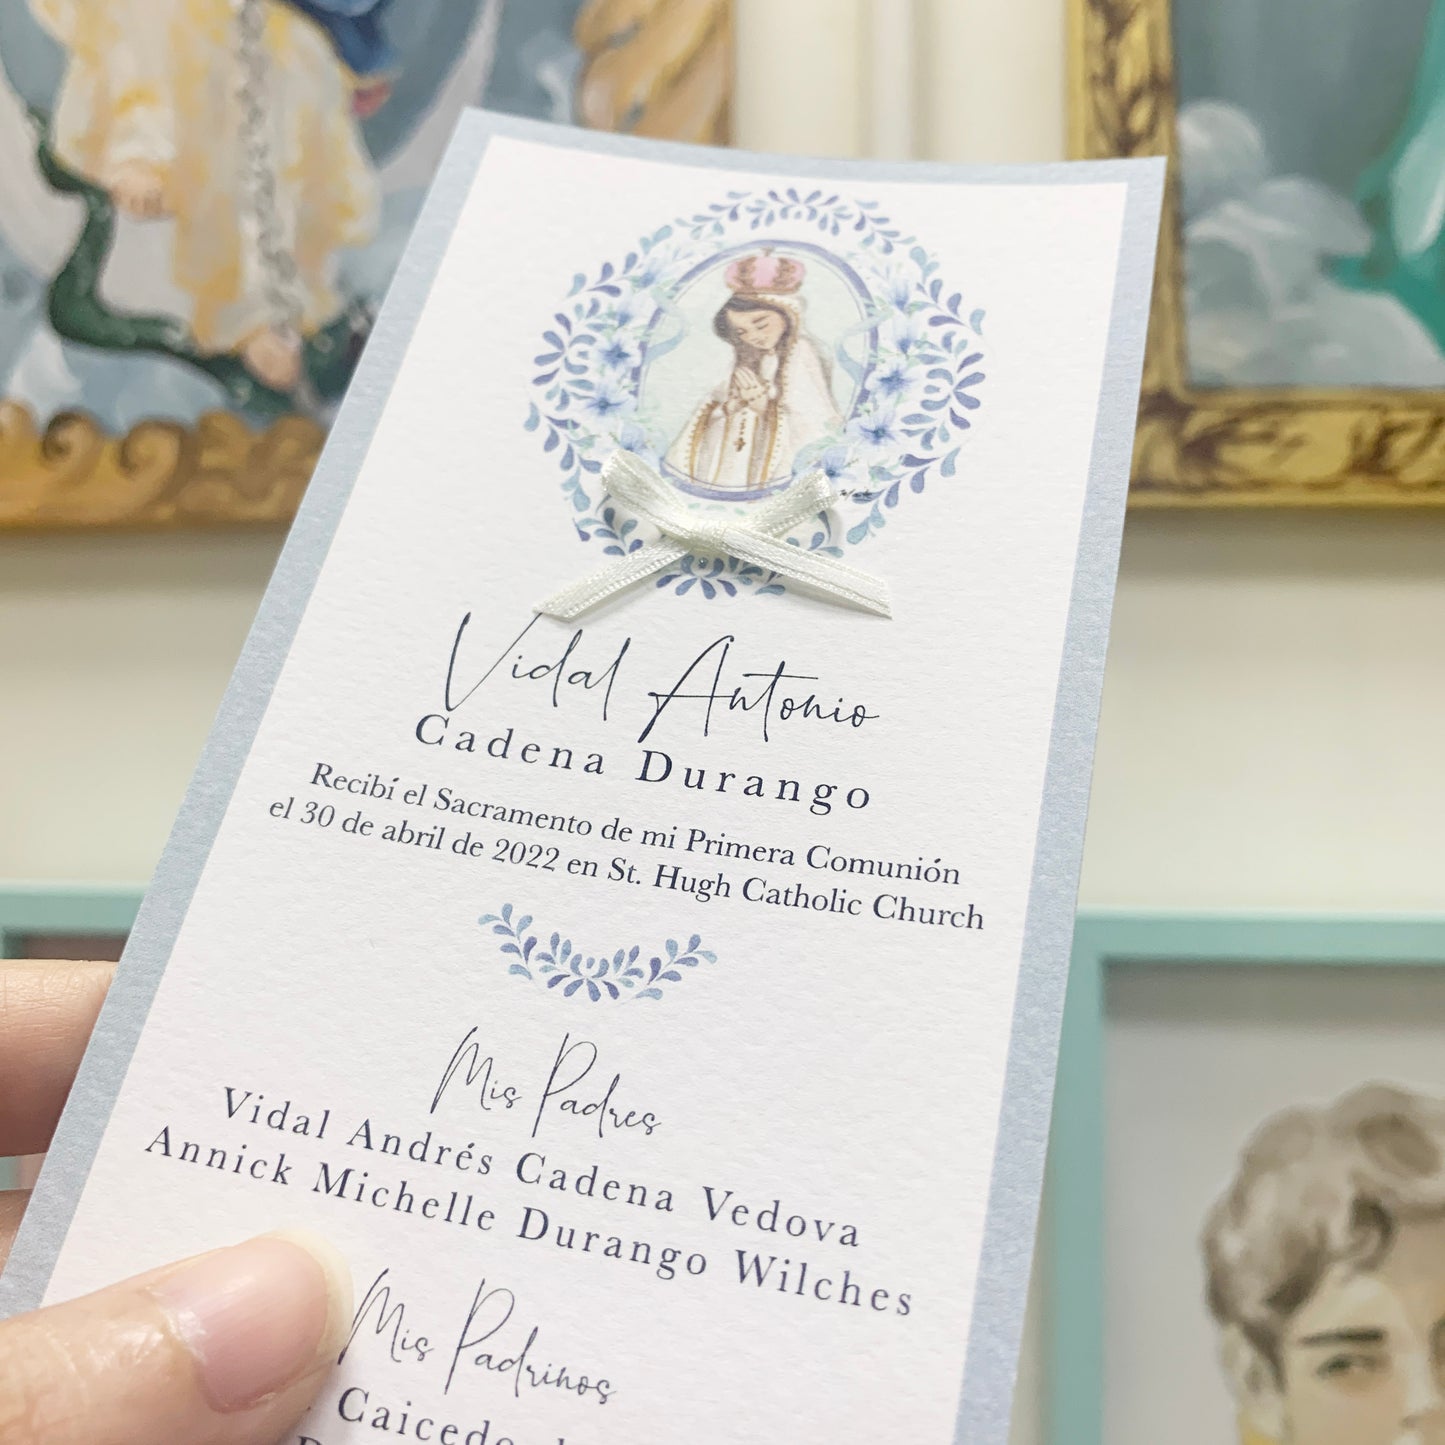 Vidal Antonio
Cadena Durango
Recibí el Sacramento de mi Primera Comunión
el 30 de abril de 2022 en St. Hugh Catholic Church
Mis Padres
Vidal Andrés Cadena Vedova
Annick Michelle Durango Wilches
Mis Padrinos
Caicedo